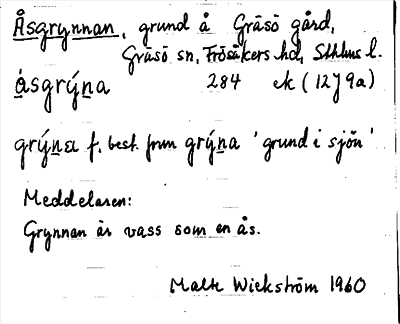 Åsgrynnan, grund å Gräsö gård,
Gräsö sn, Frösåkers hd, Sthlms l.
ásgrýna 284 ek (12 I 9a)
grýna f. best. form grýna 'grund i sjön'
Meddelaren:
Grynnan är vass som en ås.
Malte Wickström 1960